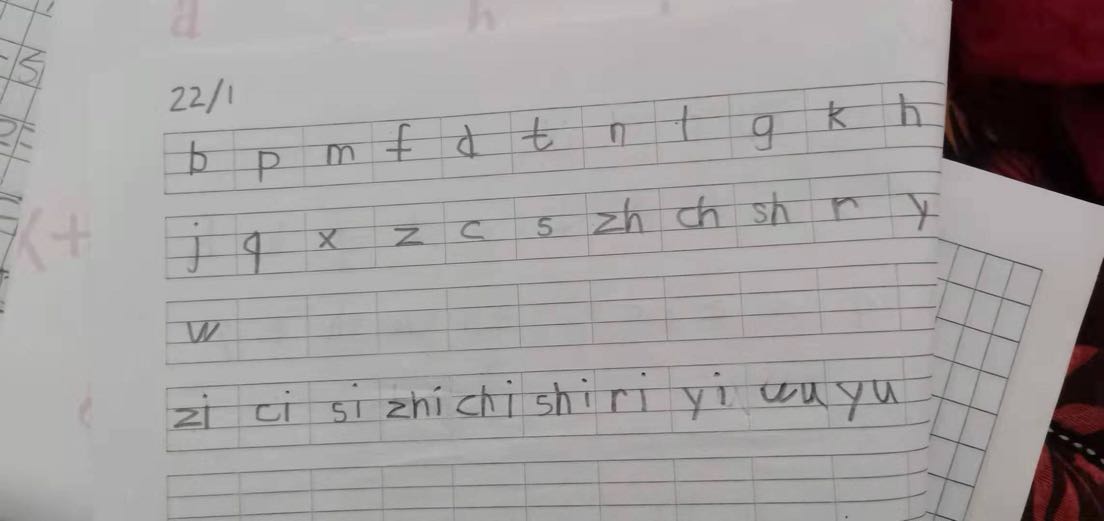 22/1
b p m f d t n l g k h
j q x z c s zh ch sh r y
w
zi ci si zhi chi shi ri yi wu yu